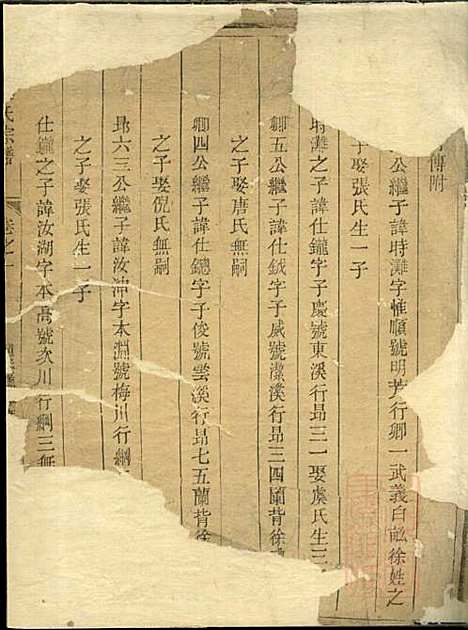 傳附
公繼子諱時灘字惟順號明芳行卿一武義白訟徐姓之
子娶張氏生一子
時灘之子諱仕鑨字子慶號東溪行昂三一娶虞氏生三
卿五公繼子諱仕鉞字子威號瀠溪行昂三四蘭背徐
之子娶唐氏無嗣
卿四公繼子諱仕鏓字子俊號雲溪行昂七五蘭背徐
之子娶倪氏無嗣
昂六三公繼子諱汝沖字本淵號梅川行綱
之子娶張氏生一子
仕鑨之子諱汝湖字本高號次川行綱三無
氏宗譜 卷之